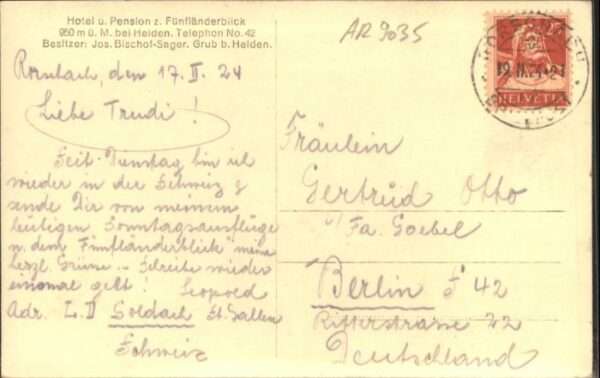 Hotel u. Pension z. Fünfländerblick
950 m ü. M. bei Heiden. Telephon No. 42
Besitzer: Jos. Bischof-Sager. Grub b. Heiden.
AR 9035
Rorschach, den 17. II. 24
Liebe Trudi!
Seit Dienstag bin ich
wieder in der Schweiz &
sende Dir von meinem
heutigen Sonntagsausfluge
n. dem "Fünfländerblick" meine
herzl. Grüsse. - Schreibe wieder
einmal gell! Leopold
Adr. L. D. Goldach St. Gallen
Schweiz
HELVETIA
Fräulein
Gertrud Otto
Fa. Goebel
Berlin S 42
Ritterstrasse 22
Deutschland